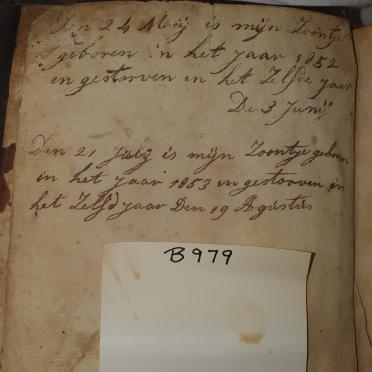 Den 24 Meij is mijn Zoontje
geboren in het jaar 1852
en gestorven in het Zelfde jaar
De 3 Junij
Den 21 july is mijn Zoontje geboren
in het jaar 1853 en gestorven in
het Zelfd jaar Den 19 Agustus
B979